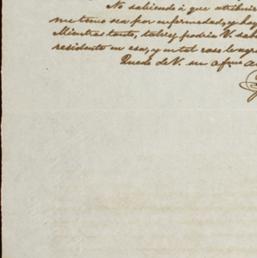 No sabiendo á que atribuir
me temo sea por enfermedad, y hoy
Mientras tanto, talvez podria V. sab
residente en esa, y en tal caso le agr
Quedo de V. su afmo a